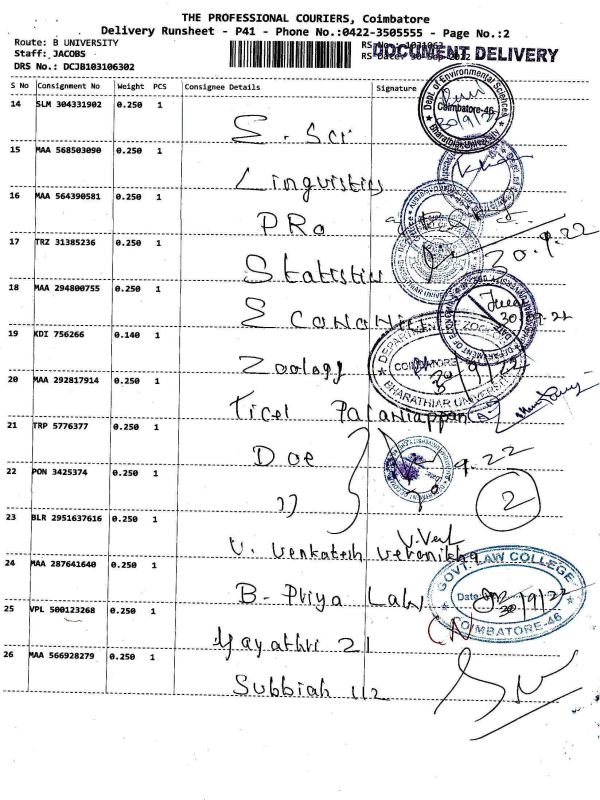 THE PROFESSIONAL COURIERS, Coimbatore
Delivery Runsheet - P41 - Phone No.:0422-3505555 - Page No.:2
Route: B UNIVERSITY
Staff: JACOBS
DRS No.: DCJB103106302
DOCUMENT DELIVERY
S No Consignment No Weight PCS Consignee Details Signature
14 SLM 304331902 0.250 1
E. Sci
Dept. of Environmental Sciences Coimbatore-46 Bharathiar University
30/9/22
15 MAA 568503090 0.250 1
Linguistics
16 MAA 564390581 0.250 1
PRo
17 TRZ 31385236 0.250 1
Statistics
30.9.22
18 MAA 294800755 0.250 1
Economics
30/9/22
19 KDI 756266 0.140 1
Zoology
DEPARTMENT OF ZOOLOGY COIMBATORE BHARATHIAR UNIVERSITY
30/9/22
20 MAA 292817914 0.250 1
Ticel Palaniappan
21 TRP 5776377 0.250 1
Doe
9.22
22 PON 3425374 0.250 1
11
2
23 BLR 2951637616 0.250 1
V. Venkatesh Veronikha
24 MAA 287641640 0.250 1
B. Priya Law
GOVT. LAW COLLEGE Date COIMBATORE-46
30/9/22
25 VPL 500123268 0.250 1
Gayathri 21
26 MAA 566928279 0.250 1
Subbiah 112